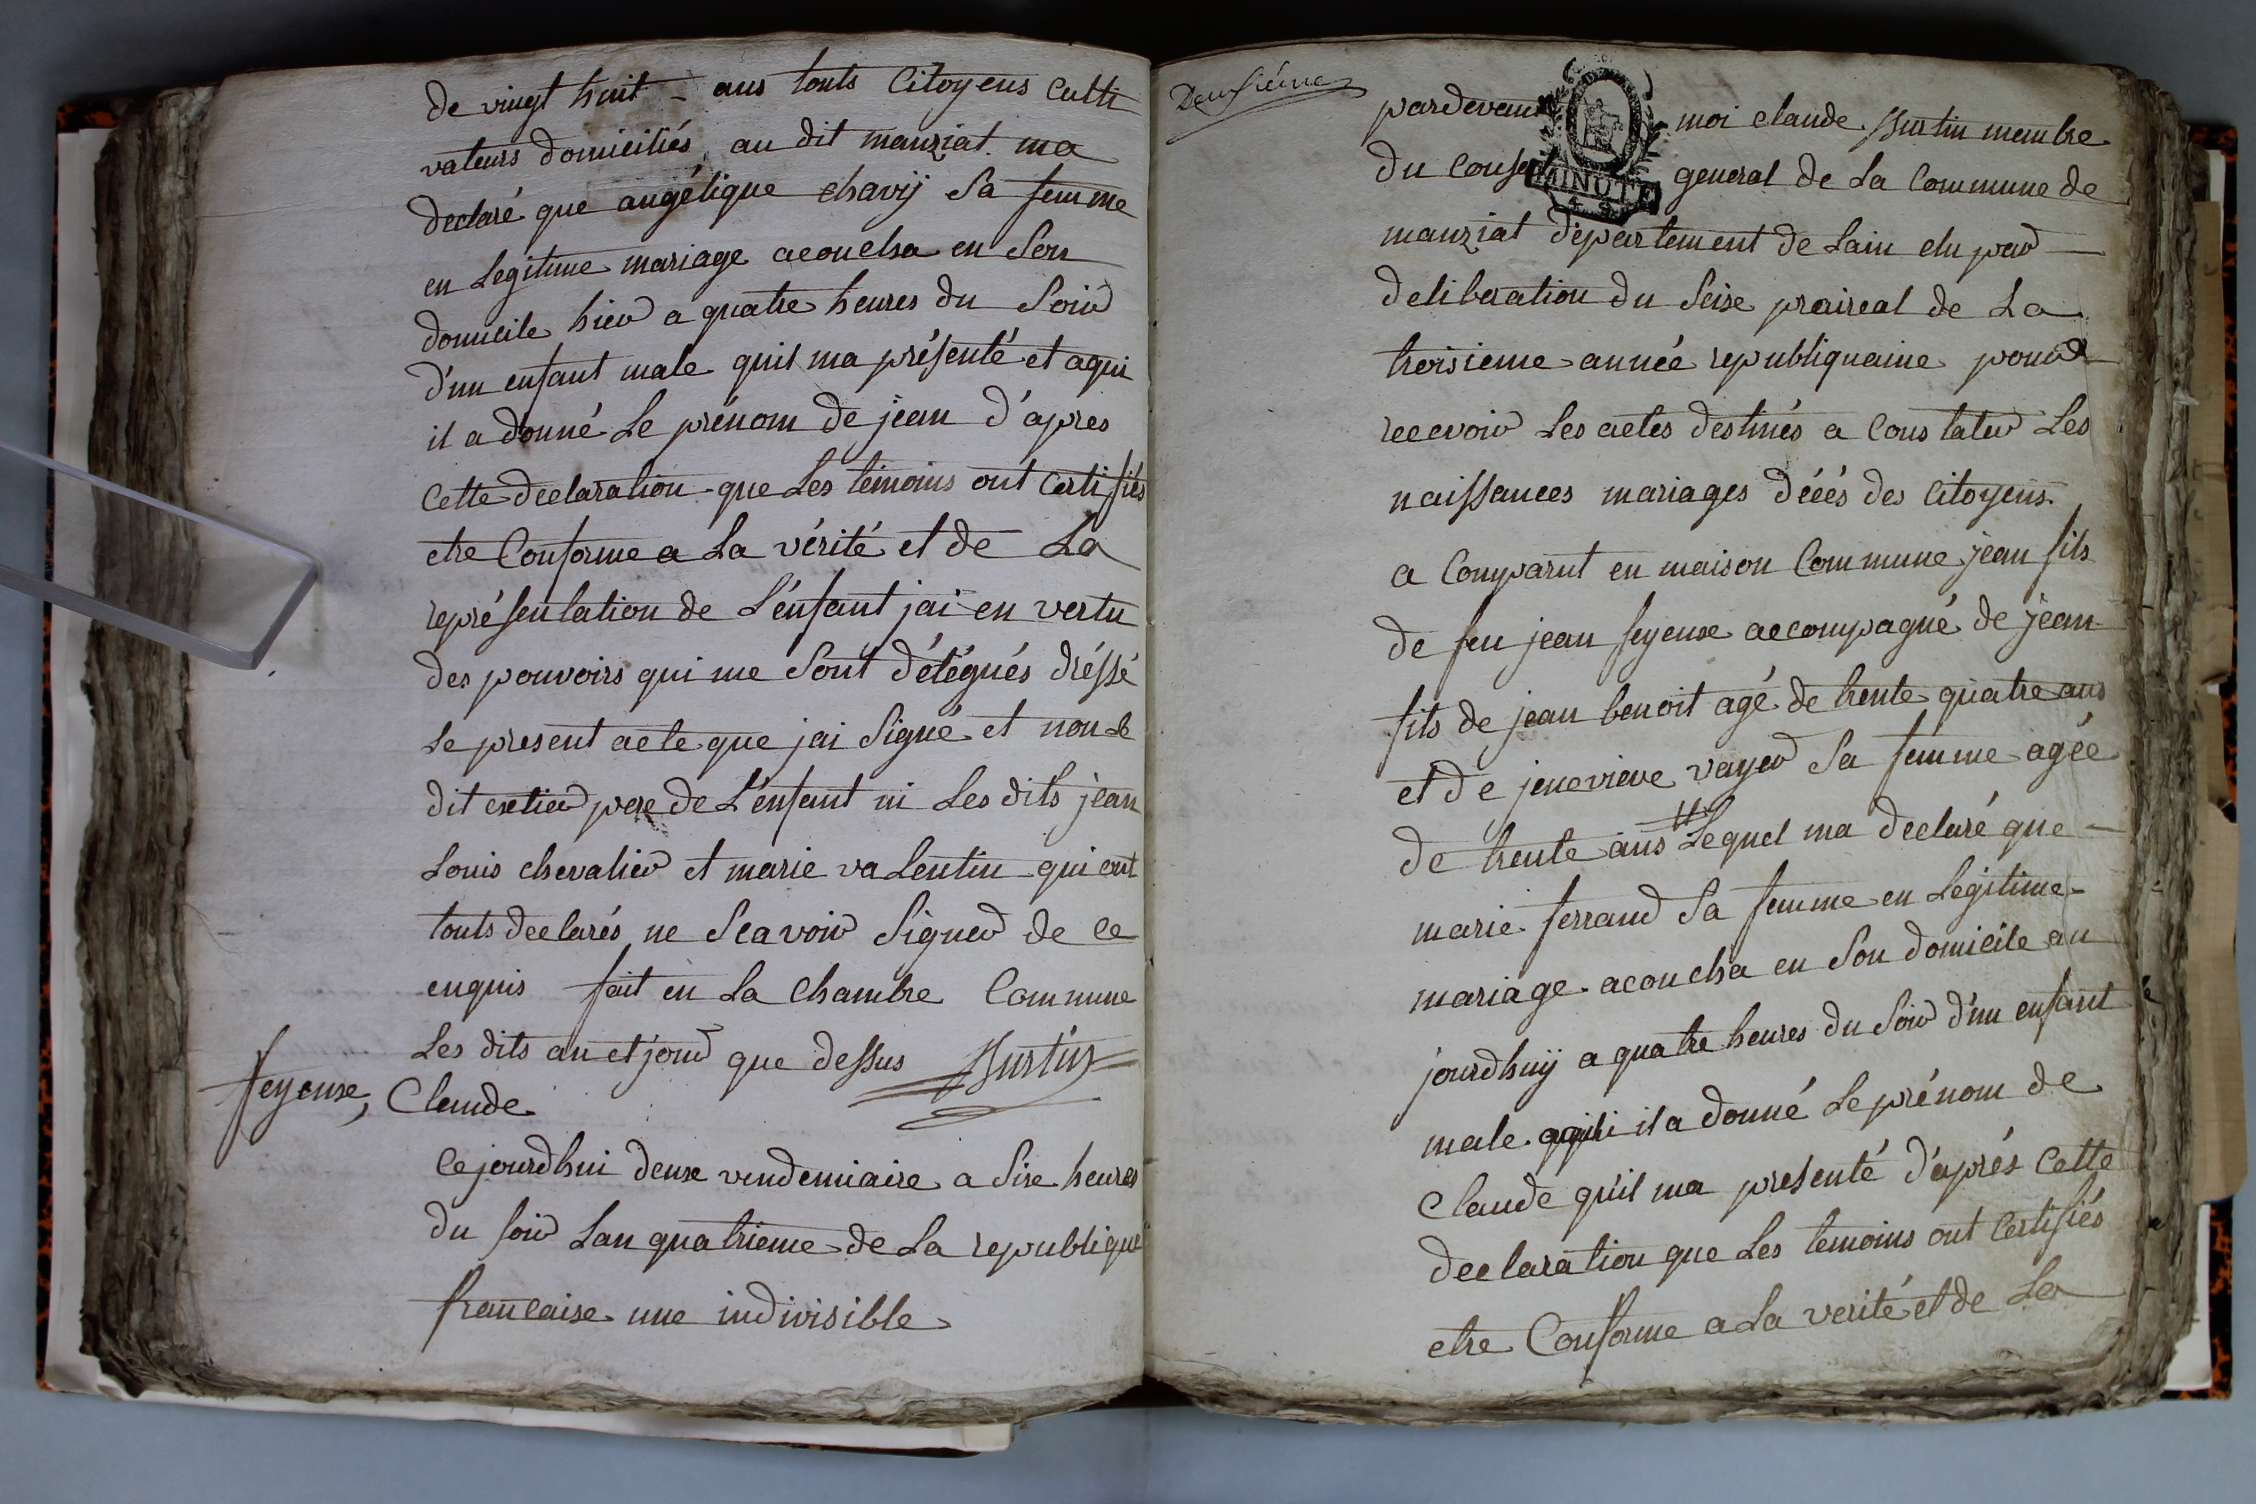 de vingt huit - ans touts Citoyens culti
vateurs domiciliés au dit manziat ma
declaré que angélique chavÿ Sa femme
en Legitime mariage acoucha en Son
domicile hier a quatre heures du Soir
d'un enfant male quil ma présenté et aqui
il a donné Le prénom de jean d'apres
Cette declaration que Les témoins ont certifiés
etre Conforme a La vérité et de La
représentation de L'énfant jai en vertu
des pouvoirs qui me Sont délégués dréssé
Le present acte que jai Signé et non Le
dit pere de L'énfant ni Les dits jean
Louis chevalier et marie valentin qui ont
touts declarés ne Scavoir Signer de ce
enquis fait en La Chambre Commune
Les dits an et jour que dessus Burtin
feyeuse, Claude
Cejourdhui deux vendemiaire a Sixe heures
du soir Lan quatrieme de La republique
francaise une indivisible
Deuxiéme
pardevant moi claude Burtin membre
MINUTE
du Conseil general de La Commune de
manziat département de Lain elu par
deliberation du Seise praireal de La
troisieme année republiquaine pour
recevoir Les actes destinés a Constater Les
naissances mariages décés des Citoyens.
a Comparut en maison Commune jean fils
de feu jean feyeuse accompagné de jean
fils de jean benoit agé de trente quatre ans
et de jenevieve vayer Sa femme agée
de trente ans Lequel ma declaré que
marie ferrand Sa femme en Legitime
mariage acoucha en Son domicile au
jourdhuÿ a quatre heures du Soir d'un enfant
male aqui il a donné Le prénom de
Claude qu'il ma presenté d'aprés Cette
declaration que Les temoins ont Certifiés
etre Conforme a La verité et de La